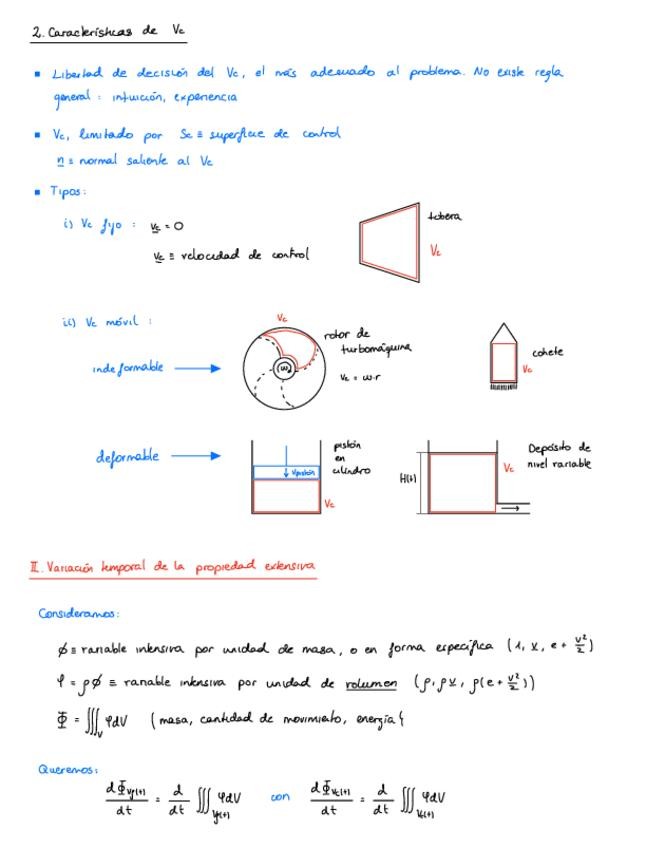 2. Características de Vc
▪ Libertad de decisión del Vc, el más adecuado al problema. No existe regla
general : intuición, experiencia
▪ Vc, limitado por Sc ≡ superficie de control
n ≡ normal saliente al Vc
▪ Tipos:
i) Vc fijo : vc = 0
vc ≡ velocidad de control
tobera
Vc
ii) Vc móvil :
indeformable
Vc
(ω)
rotor de
turbomáquina
vc = ω·r
cohete
Vc
deformable
vpistón
pistón
en
cilindro
Vc
H(t)
Vc
Depósito de
nivel variable
II. Variación temporal de la propiedad extensiva
Consideramos:
ϕ ≡ variable intensiva por unidad de masa, o en forma específica (1, v, e + v²/2)
φ = ρϕ ≡ variable intensiva por unidad de volumen (ρ, ρv, ρ(e + v²/2))
Φ = ∭_V φdV (masa, cantidad de movimiento, energía)
Queremos:
dΦ_Vf(t)/dt = d/dt ∭_Vf(t) φdV con dΦ_Vc(t)/dt = d/dt ∭_Vc(t) φdV